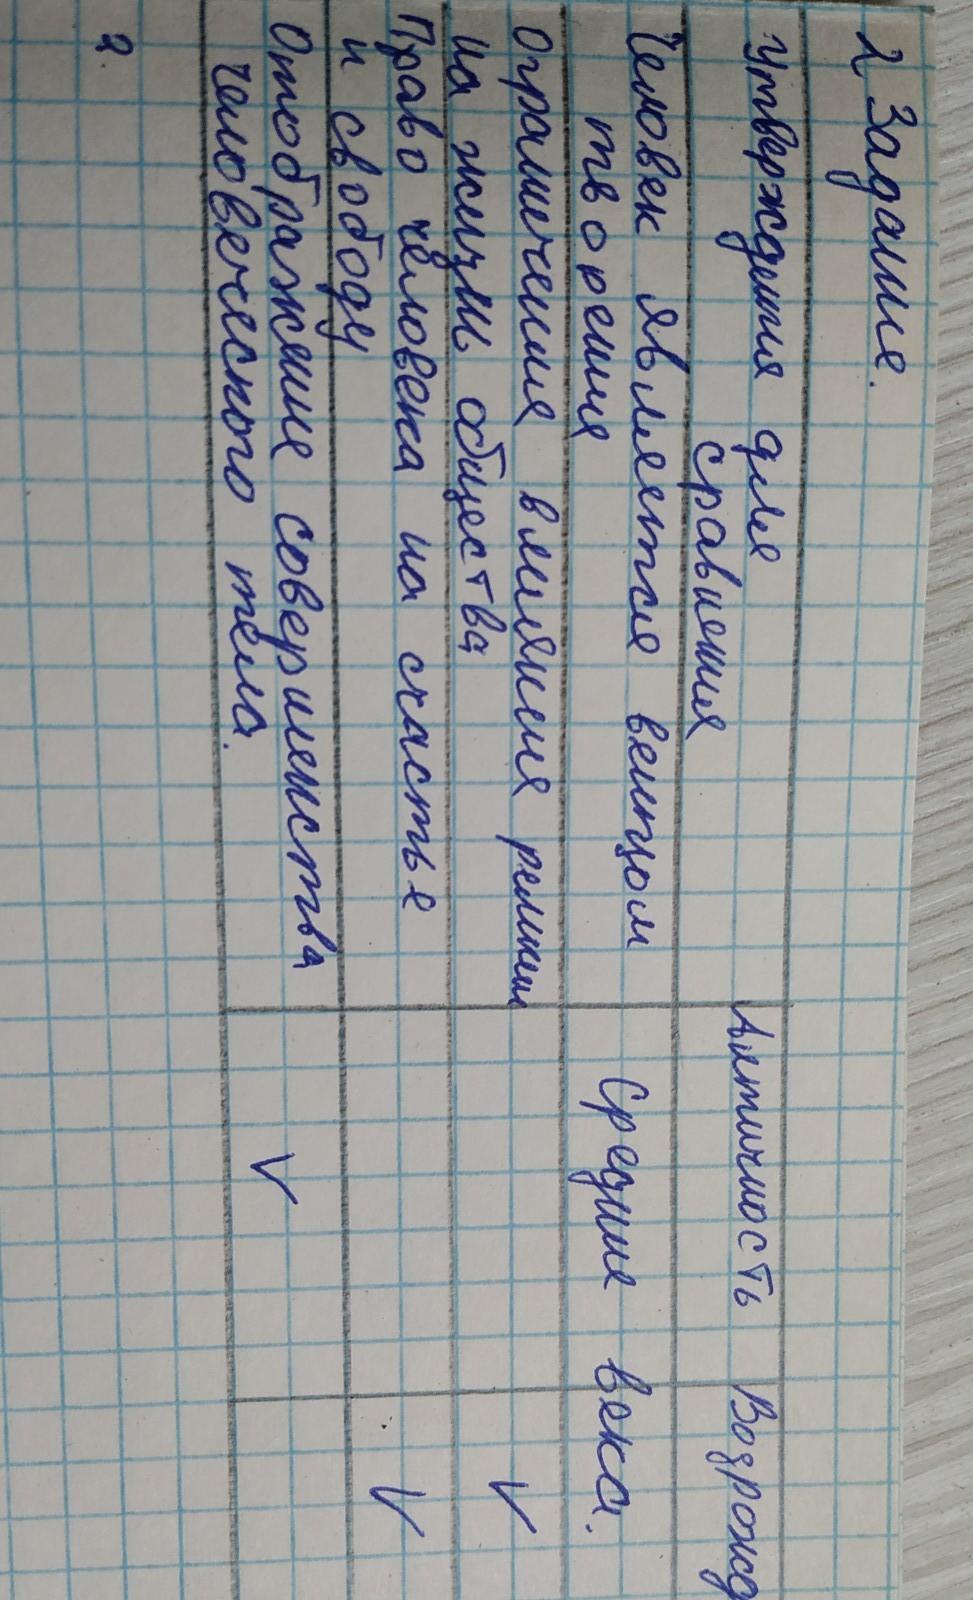 2 Задание.
Утверждения для сравнения Античность Возрожд
Человек является венцом
творения Средние века.
Ограничения влияния религии
на жизнь общества V
Право человека на счастье
и свободу V
Отображение совершенства
человеческого тела. V
2.